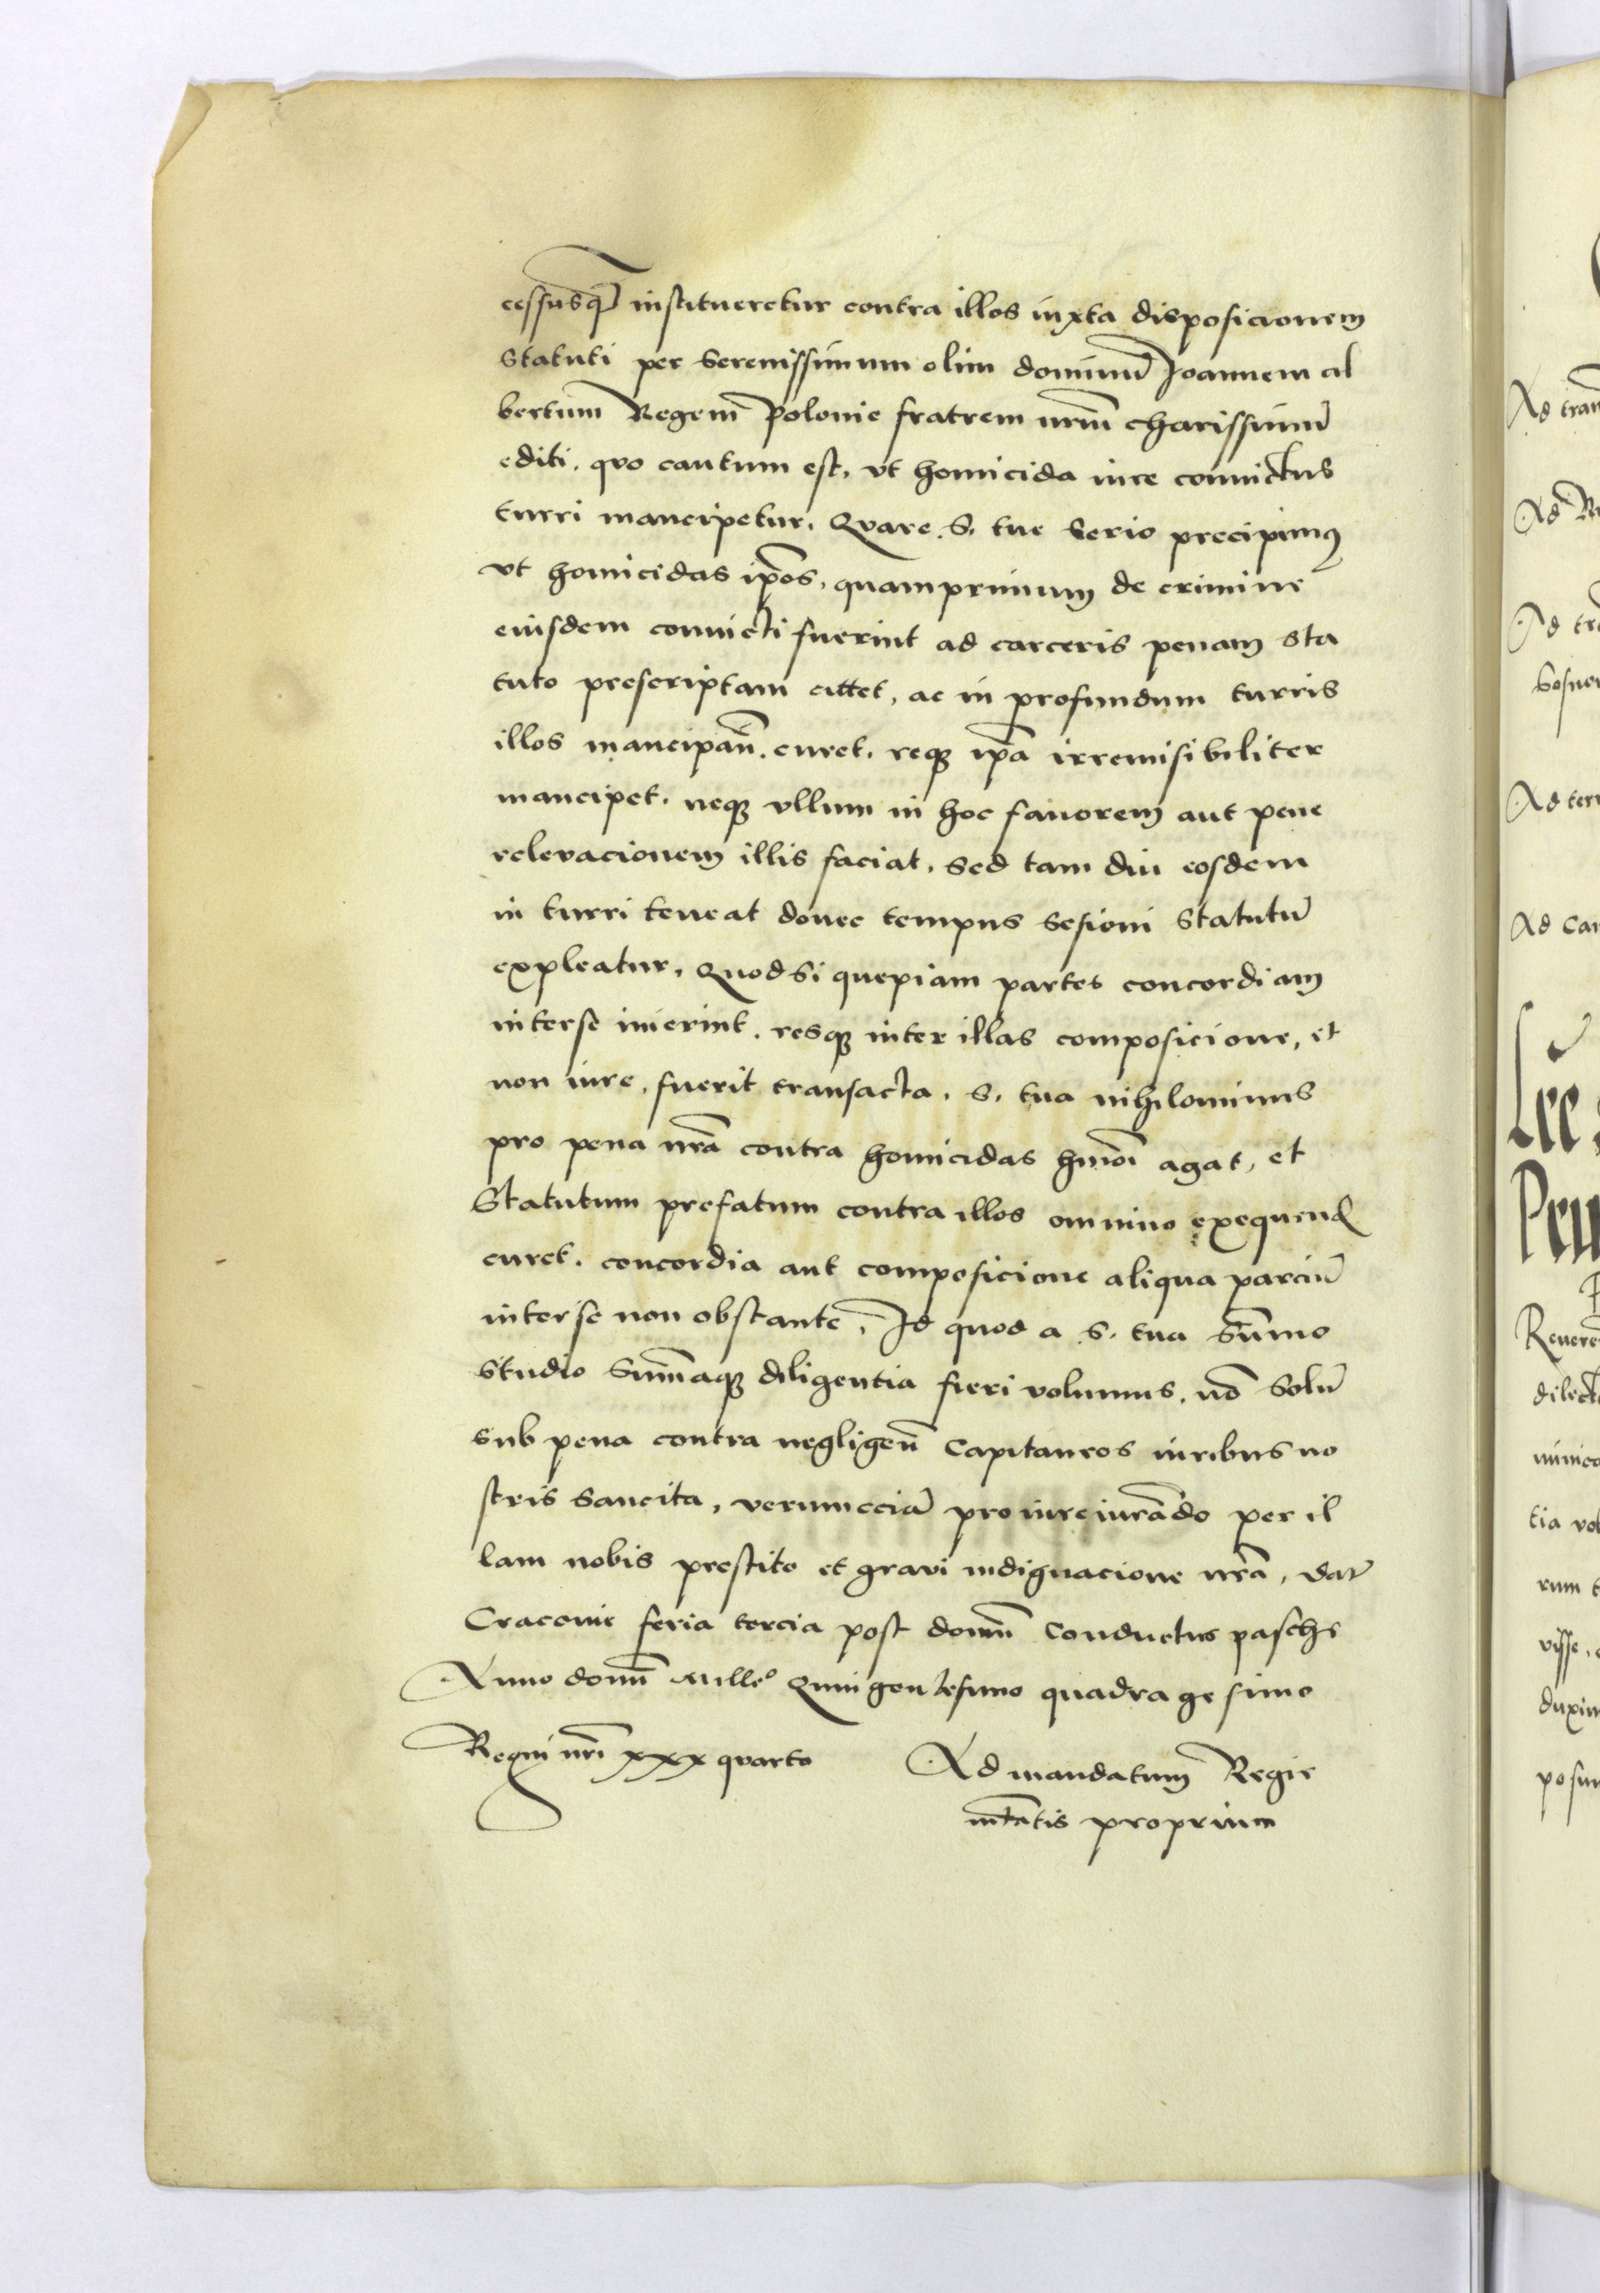 cessusq̃ institueretur contra illos iuxta disposicionem
statuti per Serenissimum olim dominũ Joannem al
bertum Regem Polonie fratrem nr̃m charissimũ
editi. quo cautum est, vt homicida iure conuictus
turri mancipetur. Quare. S. tue Serio precipimꝰ
vt homicidas ip̃os, quamprimum de crimine
eiusdem conuicti fuerint ad carceris penam sta
tuto prescriptam cittet, ac in profundum turris
illos mancipan̄. curet. reqꝫ ip̃a irremisibiliter
mancipet. neqꝫ vllum in hoc fauorem aut pene
relevacionem illis faciat, Sed tam diu eosdem
in turri teneat donec tempus sesioni statutũ
expleatur, Quodsi quepiam partes concordiam
interse inierint. resqꝫ inter illas composicione, et
non iure, fuerit transacta. S. tua nihilominus
pro pena nr̃a contra homicidas hm̃oi agat, et
Statutum prefatum contra illos omnino exequend
curet. concordia aut composicione aliqua parciũ
interse non obstante, Id quod a S. tua Sũmo
studio Sũmaqꝫ diligentia fieri volumus, nõ Solũ
sub pena contra negligen̄ Capitaneos iuribus no
stris sancita, verumeciã pro iureiurãdo per il
lam nobis prestito et gravi indignacione nr̃a, dat̃
Cracouie feria tercia post domin̄ Conductus pasche
Anno domin̄ Mille° Quingentesimo quadragesimo
Regni nr̃i xxx quarto Ad mandatum Regie
mtatis proprium
Ad
Ad
Ad
Ad
Ad
dilect
tia
rum
visse,